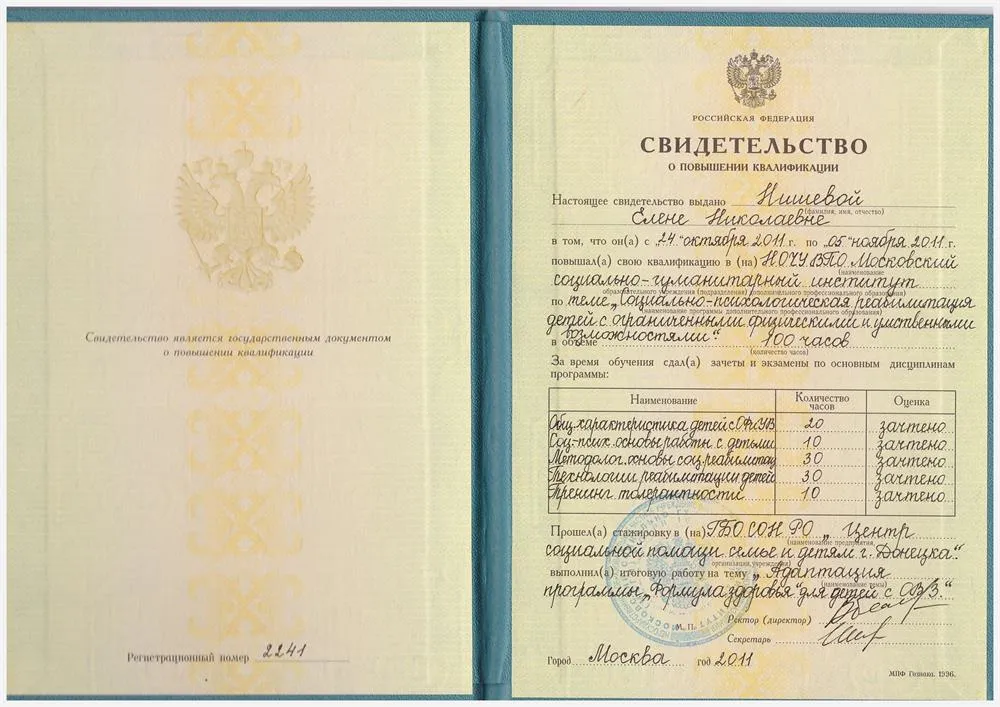 Свидетельство является государственным документом
о повышении квалификации
Регистрационный номер 2241
РОССИЙСКАЯ ФЕДЕРАЦИЯ
СВИДЕТЕЛЬСТВО
О ПОВЫШЕНИИ КВАЛИФИКАЦИИ
Настоящее свидетельство выдано Нишевой
(фамилия, имя, отчество)
Елене Николаевне
в том, что он(а) с „24“ октября 2011 г. по „05“ ноября 2011 г.
повышал(а) свою квалификацию в (на) НОЧУ ВПО Московский
(наименование
социально-гуманитарный институт
образовательного учреждения (подразделения) дополнительного профессионального образования)
по теме „Социально-психологическая реабилитация
(наименование программы дополнительного профессионального образования)
детей с ограниченными физическими и умственными
возможностями“
в объеме 100 часов
(количество часов)
За время обучения сдал(а) зачеты и экзамены по основным дисциплинам
программы:
Наименование Количество часов Оценка
Общ. характеристика детей с ОФиУВ 20 зачтено
Соц-псих. основы работы с детьми 10 зачтено
Методолог. основы соц. реабилитац 30 зачтено
Технологии реабилитации детей 30 зачтено
Тренинг толерантности 10 зачтено
Прошел(а) стажировку в (на) ГБОСОН РО „Центр
(наименование предприятия,
социальной помощи семье и детям г. Донецка“.
организации, учреждения)
выполнил(а) итоговую работу на тему „Адаптация
(наименование темы)
программы „Формула здоровья“ для детей с ОВЗ.“
Ректор (директор)
М. П.
Секретарь
Город Москва год 2011
МПФ Гознака. 1996.